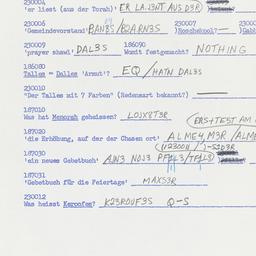 230004
'er liest (aus der Torah)' ER LA.J3NT AUS.D3R
230006
'Gemeindevorstand' BAN3S/B2ARN3S 230007
230009 186090
'prayer shawl' DAL3S Womit festgemacht? NOTHING
186080
Talles = Dalles 'Armut'? EQ/HATN DAL3S
230010
"Der Talles mit 7 Farben" (Redensart bekannt?) —
187010
Was hat Menorah geheissen? LOJX8T3R
187020 (ERST+TEST AM
'die Erhöhung, auf der der Chasen ort' ALME4,M3R/ALME
187030
'ein neues Gebetbuch' AJN3 NOJ3
187031
'Gebetbuch für die Feiertage' MAXS3R
230012
Was heisst Keroofes? K23ROUF3S Q-S